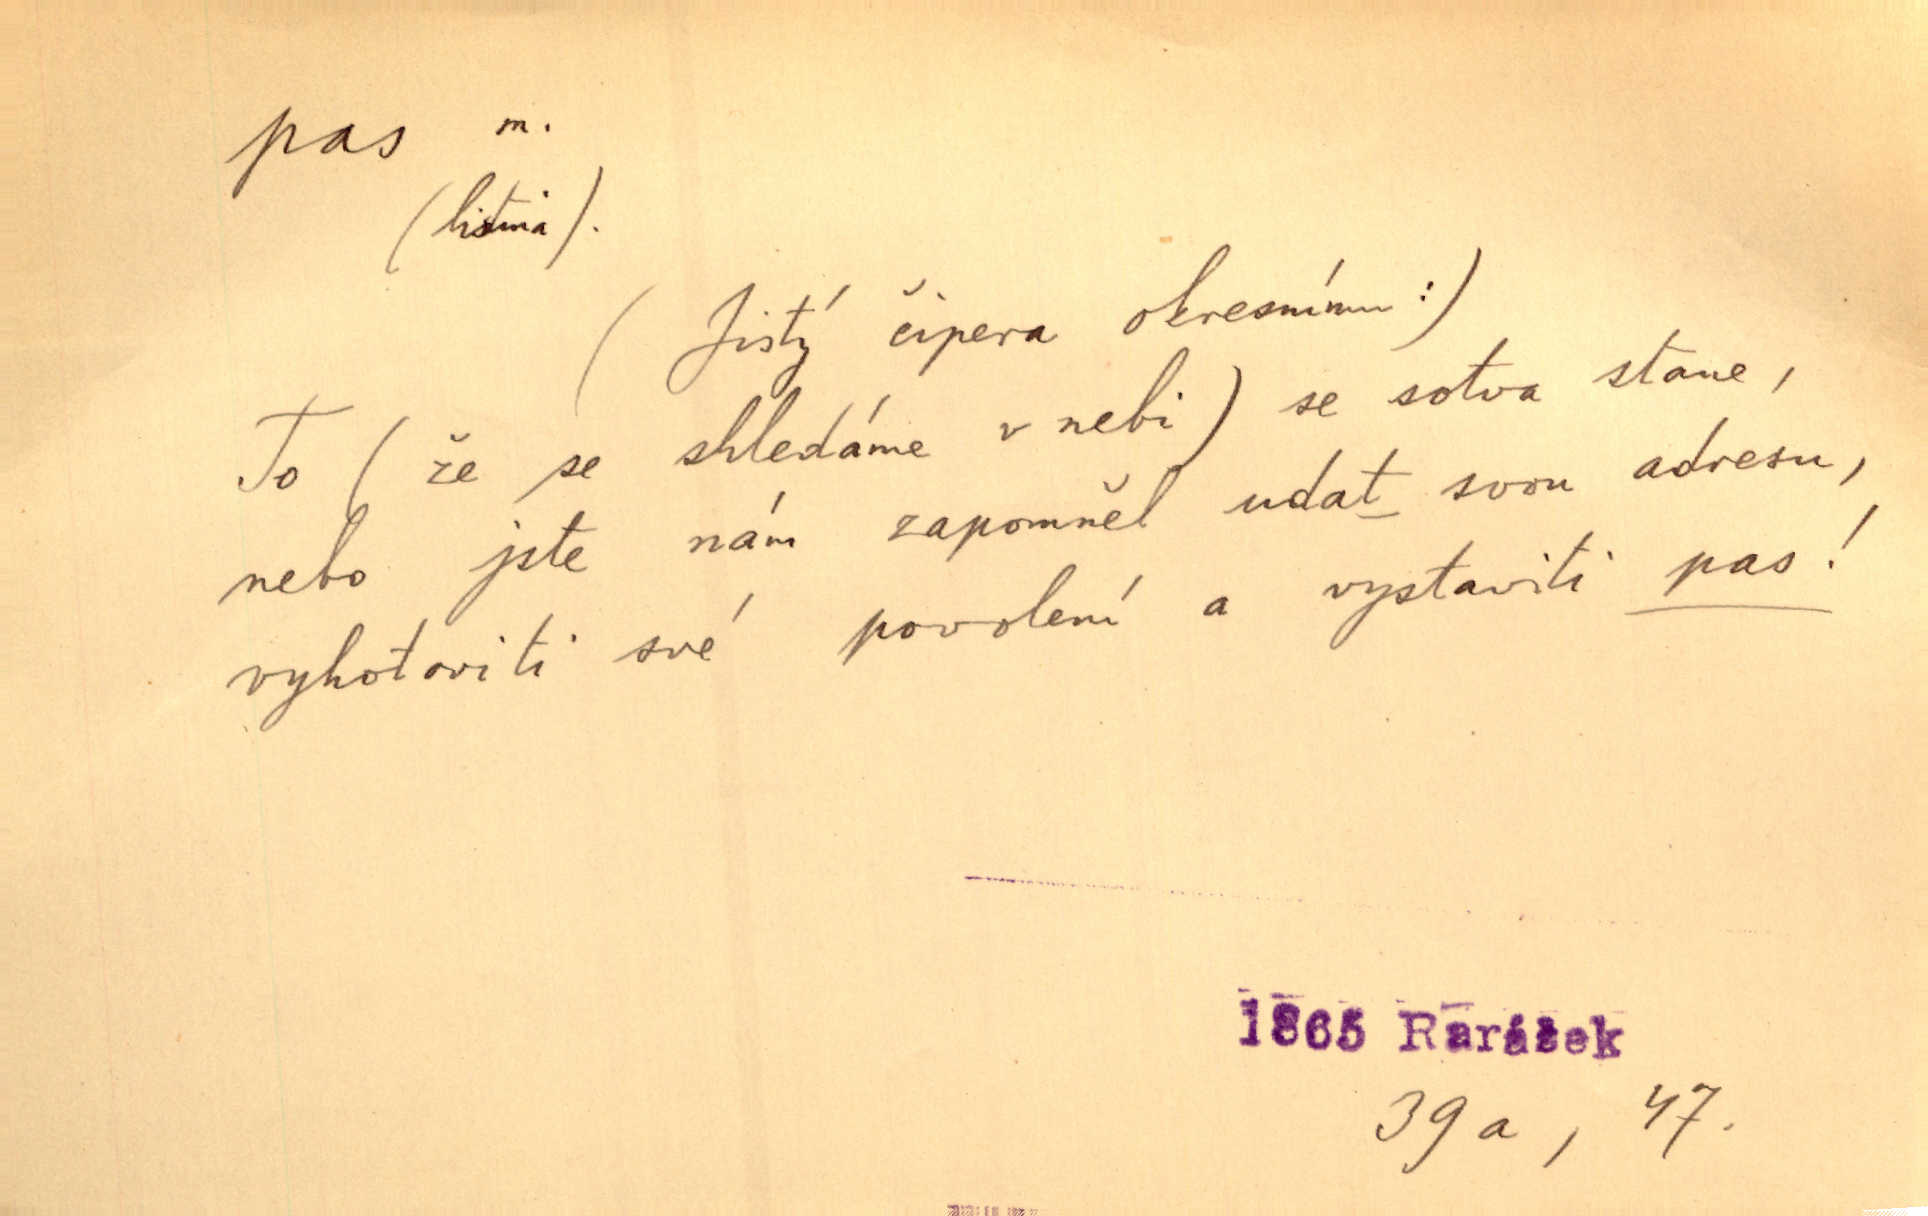 pas m.
(listina).
(Jistý čipera okresnímu:)
To (že se shledáme v nebi) se sotva stane,
nebo jste nám zapomněl udat svou adresu,
vyhotoviti své povolení a vystaviti pas!
1865 Rarášek
39a, 47.